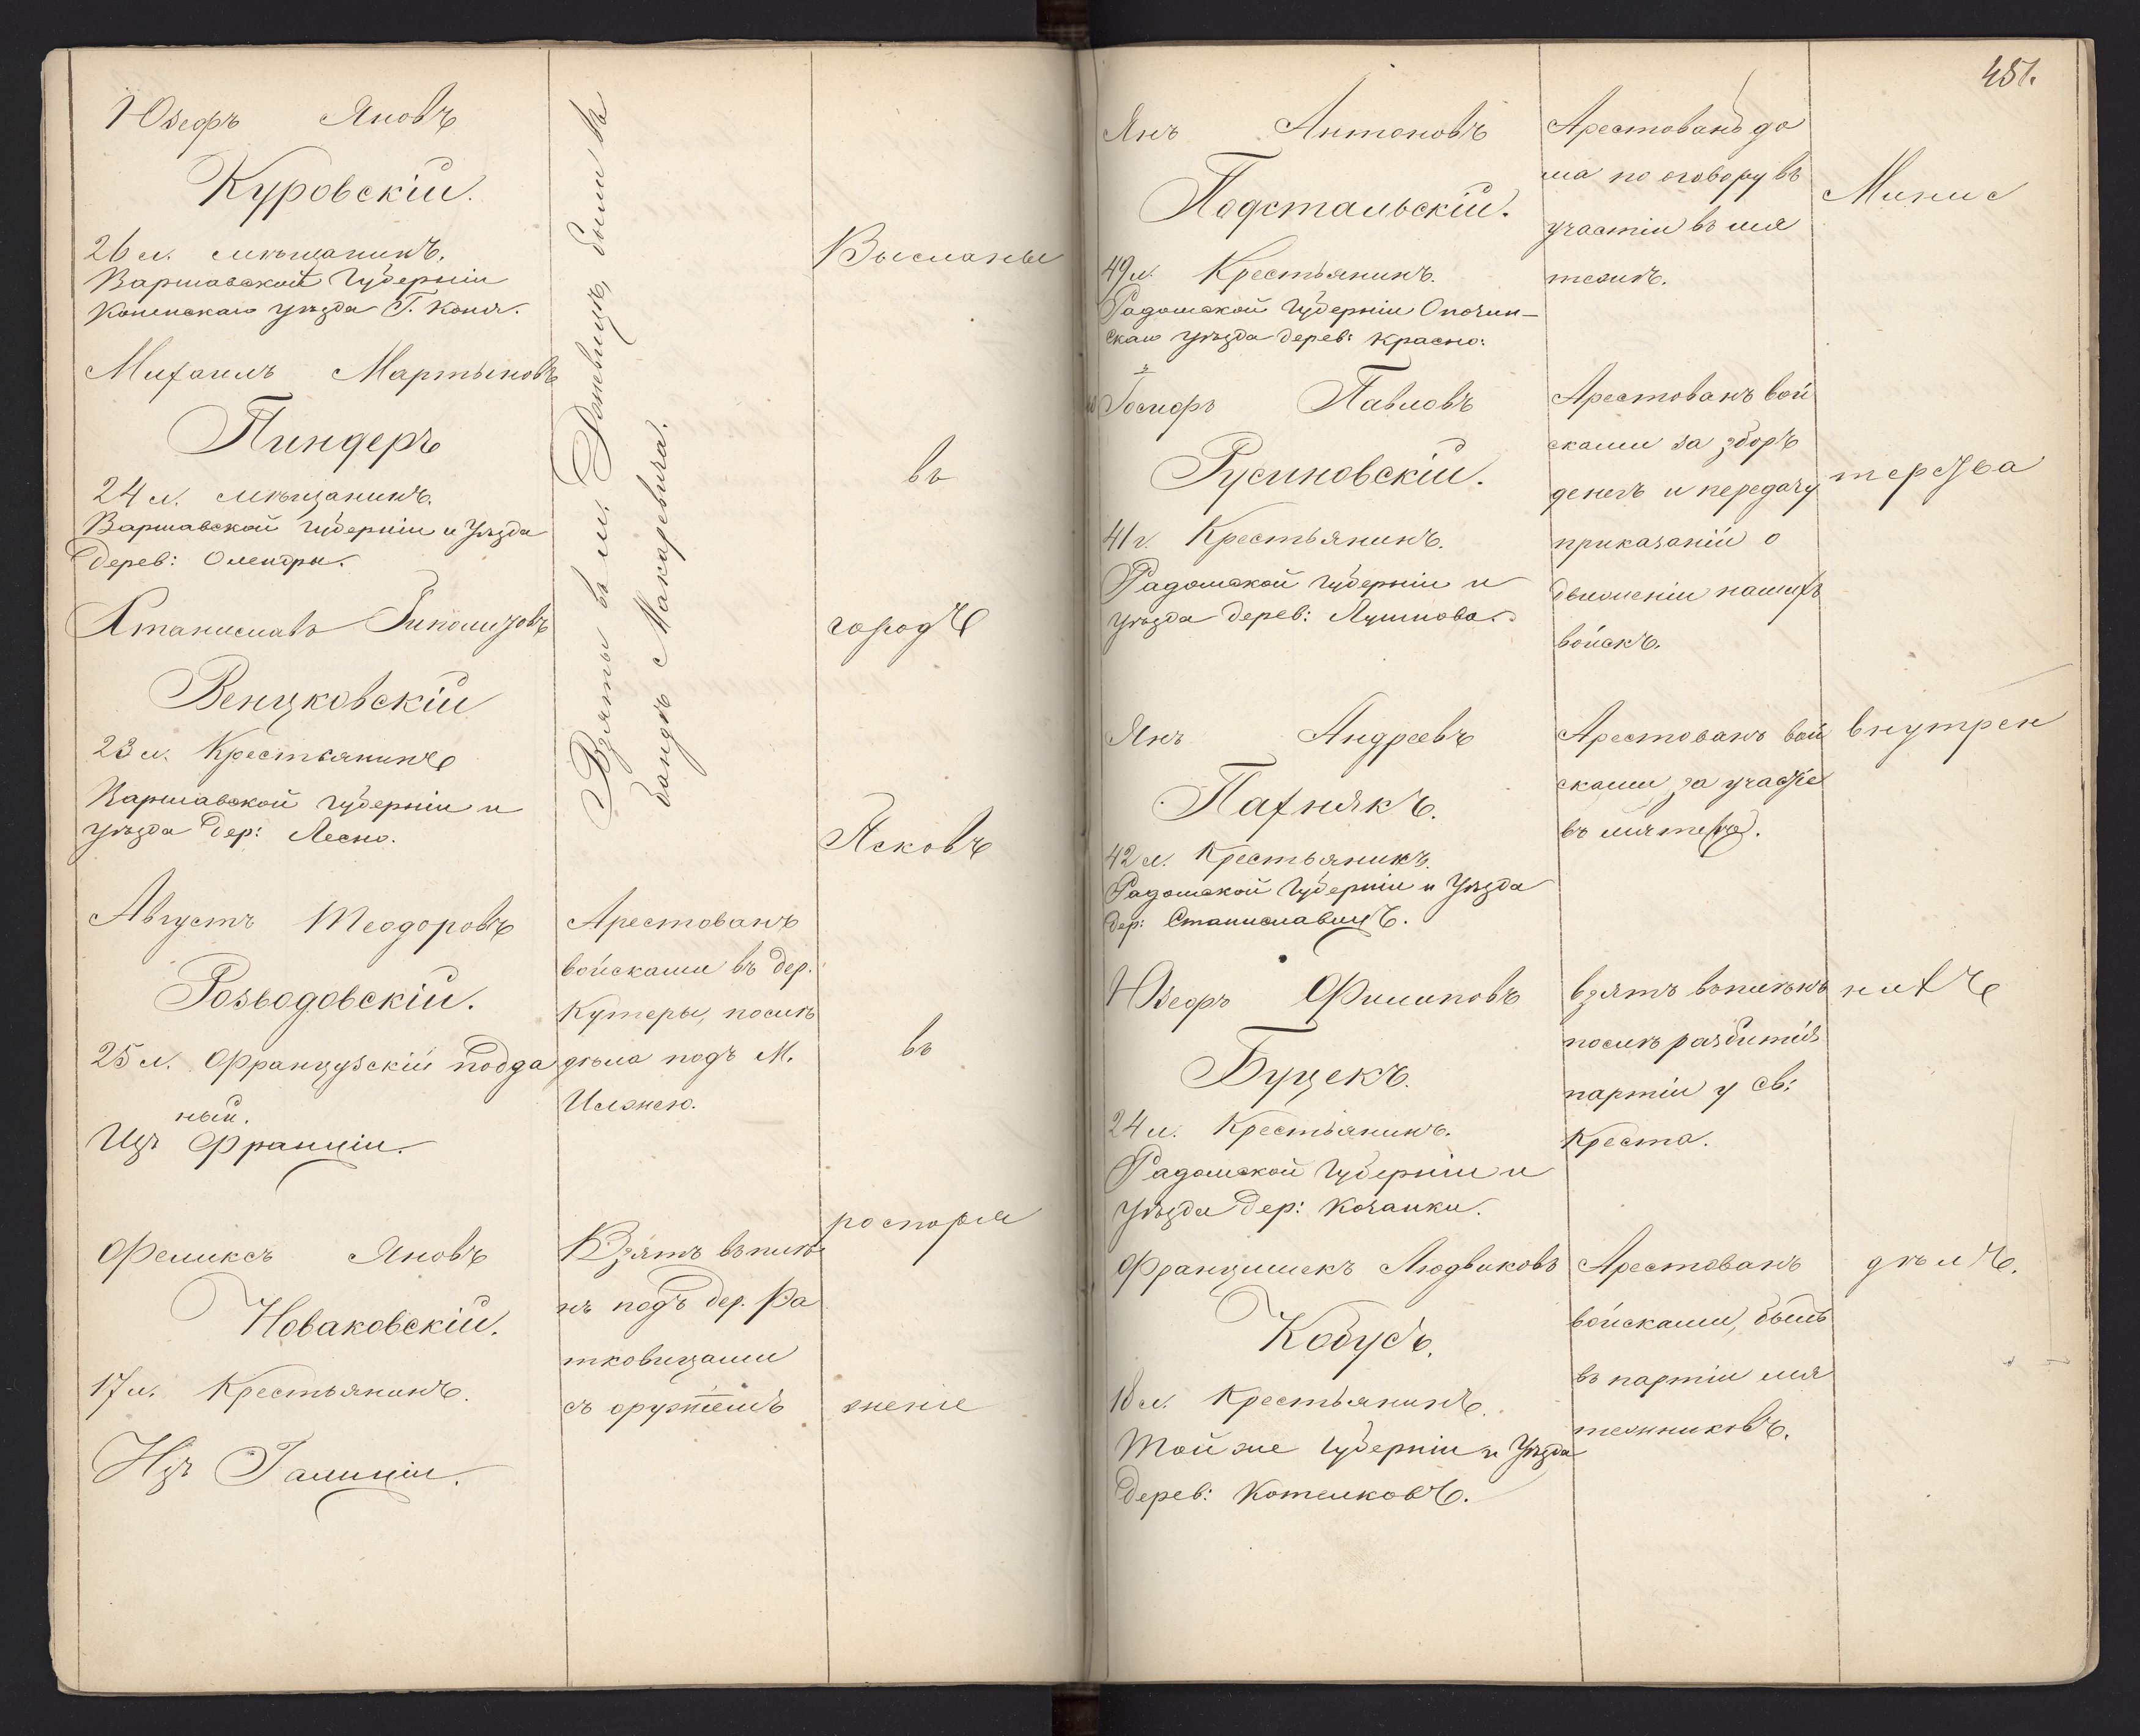 Юзефъ Яновъ
Куровскій.
26 л. мѣщанинъ.
Варшавской Губерніи
Конинскаго уѣзда Г. Коня.
Михаилъ Мартыновъ
Пиндеръ
24 л. мѣщанинъ.
Варшавской Губерніи и Уѣзда
дерев: Олендры.
Станиславъ
Венцковскій
23 л. Крестьянинъ
Варшавской Губерніи и
уѣзда дер: Лесно.
Августъ Теодоровъ
Розводовскій.
25 л. Французскій подда
ный.
Изъ Франціи.
Феликсъ Яновъ
Новаковскій.
17 л. Крестьянинъ.
Изъ Галиціи.
Взяты въ м. были въ
бандѣ Макаревича.
Арестованъ
войсками въ дер.
Кутеры, послѣ
дѣла подъ М.
Илжею.
Взятъ въ плѣ
нъ подъ дер. Ра
тковицами
съ оружіемъ
Высланы
въ
городъ
Псковъ
въ
распоря
женіе
451.
Янъ Антоновъ
Подстальскій.
49 л. Крестьянинъ.
Радомской Губерніи Опочин-
скаго уѣзда дерев: Красно:
Іосифъ Павловъ
Русиновскій.
41 г. Крестьянинъ.
Радомской Губерніи и
уѣзда дерев:
Янъ Андреевъ
Пахнякъ.
42 л. Крестьянинъ.
Радомской Губерніи и Уѣзда
дер: Станиславицъ.
Юзефъ Филиповъ
Буцекъ.
24 л. Крестьянинъ.
Радомской Губерніи и
уѣзда дер: Кочанки.
Францишекъ Людвиковъ
Кобусъ.
18 л. Крестьянинъ.
Той же Губерніи и Уѣзда
дерев: Котелковъ.
Арестованъ до
ма по оговору въ
участіи въ мя
тежѣ.
Арестованъ вой
сками за зборъ
денегъ и передачу
приказаній о
движеніи нашихъ
войскъ.
Арестованъ вой
сками за участіе
въ мятежѣ.
взятъ въ плѣнъ
послѣ разбитія
партіи у Св:
Креста.
Арестованъ
войсками, былъ
въ партіи мя
тежниковъ.
Минис
терства
внутрен
нихъ
дѣлъ.